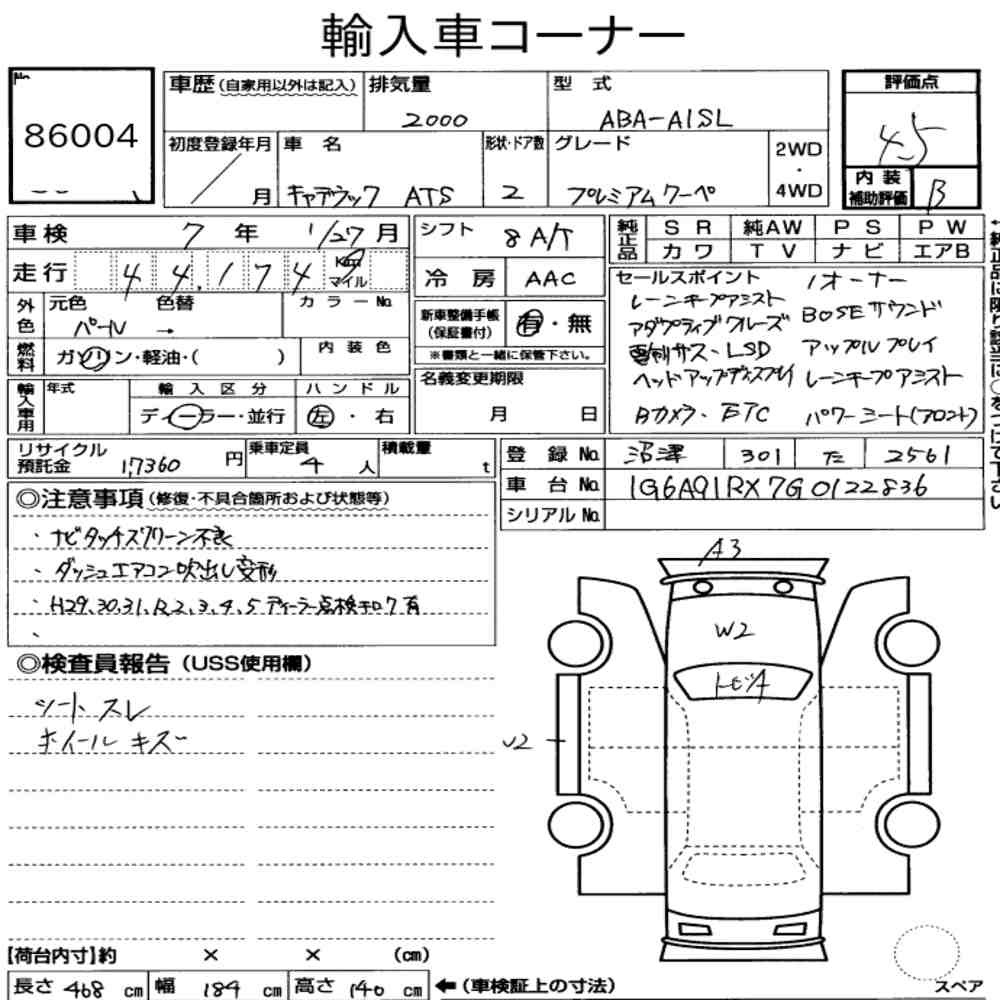 輸入車コーナー
No.
86004
車歴(自家用以外は記入) 排気量 2000 型式 ABA-A1SL
評価点 4.5
初度登録年月 / 月 車名 キャデラック ATS 形状・ドア数 2 グレード プレミアムクーペ 2WD・4WD
内装補助評価 B
車検 7年 1/27月 シフト 8A/T
純正品 SR 純AW PS PW
カワ TV ナビ エアB
走行 44,174 Km マイル 冷房 AAC
外色 元色 パール 色替 → カラーNo.
新車整備手帳(保証書付) 有・無
※書類と一緒に保管下さい。
燃料 ガソリン・軽油・( ) 内装色
名義変更期限 月 日
輸入車用 年式 輸入区分 ディーラー・並行 ハンドル 左・右
セールスポイント 1オーナー
レーンキープアシスト BOSEサウンド
アダプティブクルーズ
電制サス・LSD アップルプレイ
ヘッドアップディスプレイ レーンキープアシスト
Bカメラ・ETC パワーシート(フロント)
リサイクル預託金 17360円 乗車定員 4人 積載量 t
登録No. 沼津 301 た 2561
車台No. 1G6A91RX7G0122836
シリアルNo.
◎注意事項(修復・不具合箇所および状態等)
・ナビタッチスクリーン不良
・ダッシュエアコン吹出し変形
・H29.30.31.R2.3.4.5ディーラー点検キロク有
・
◎検査員報告(USS使用欄)
シートスレ
ホイールキズ
A3
W2
トビ
【荷台内寸】約 × × (cm)
長さ 468 cm 幅 184 cm 高さ 140 cm ←(車検証上の寸法)
スペア